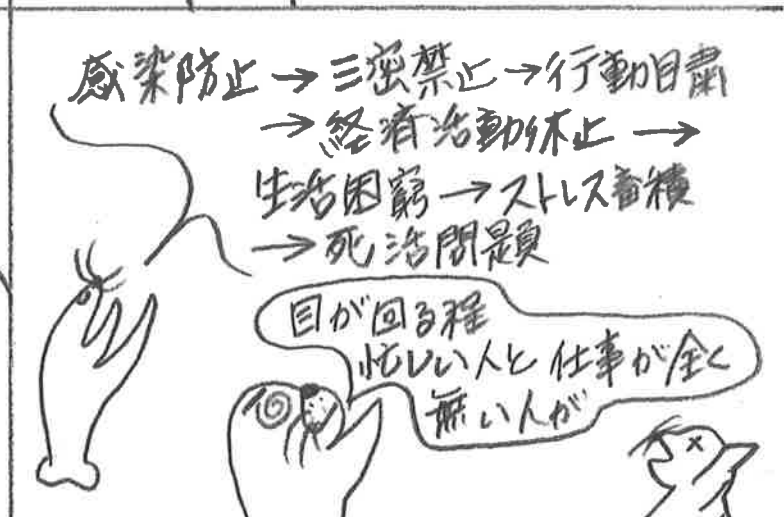 感染防止→三密禁止→行動自粛
→経済活動休止→
生活困窮→ストレス蓄積
→死活問題
目が回る程
忙しい人と仕事が全く
無い人が